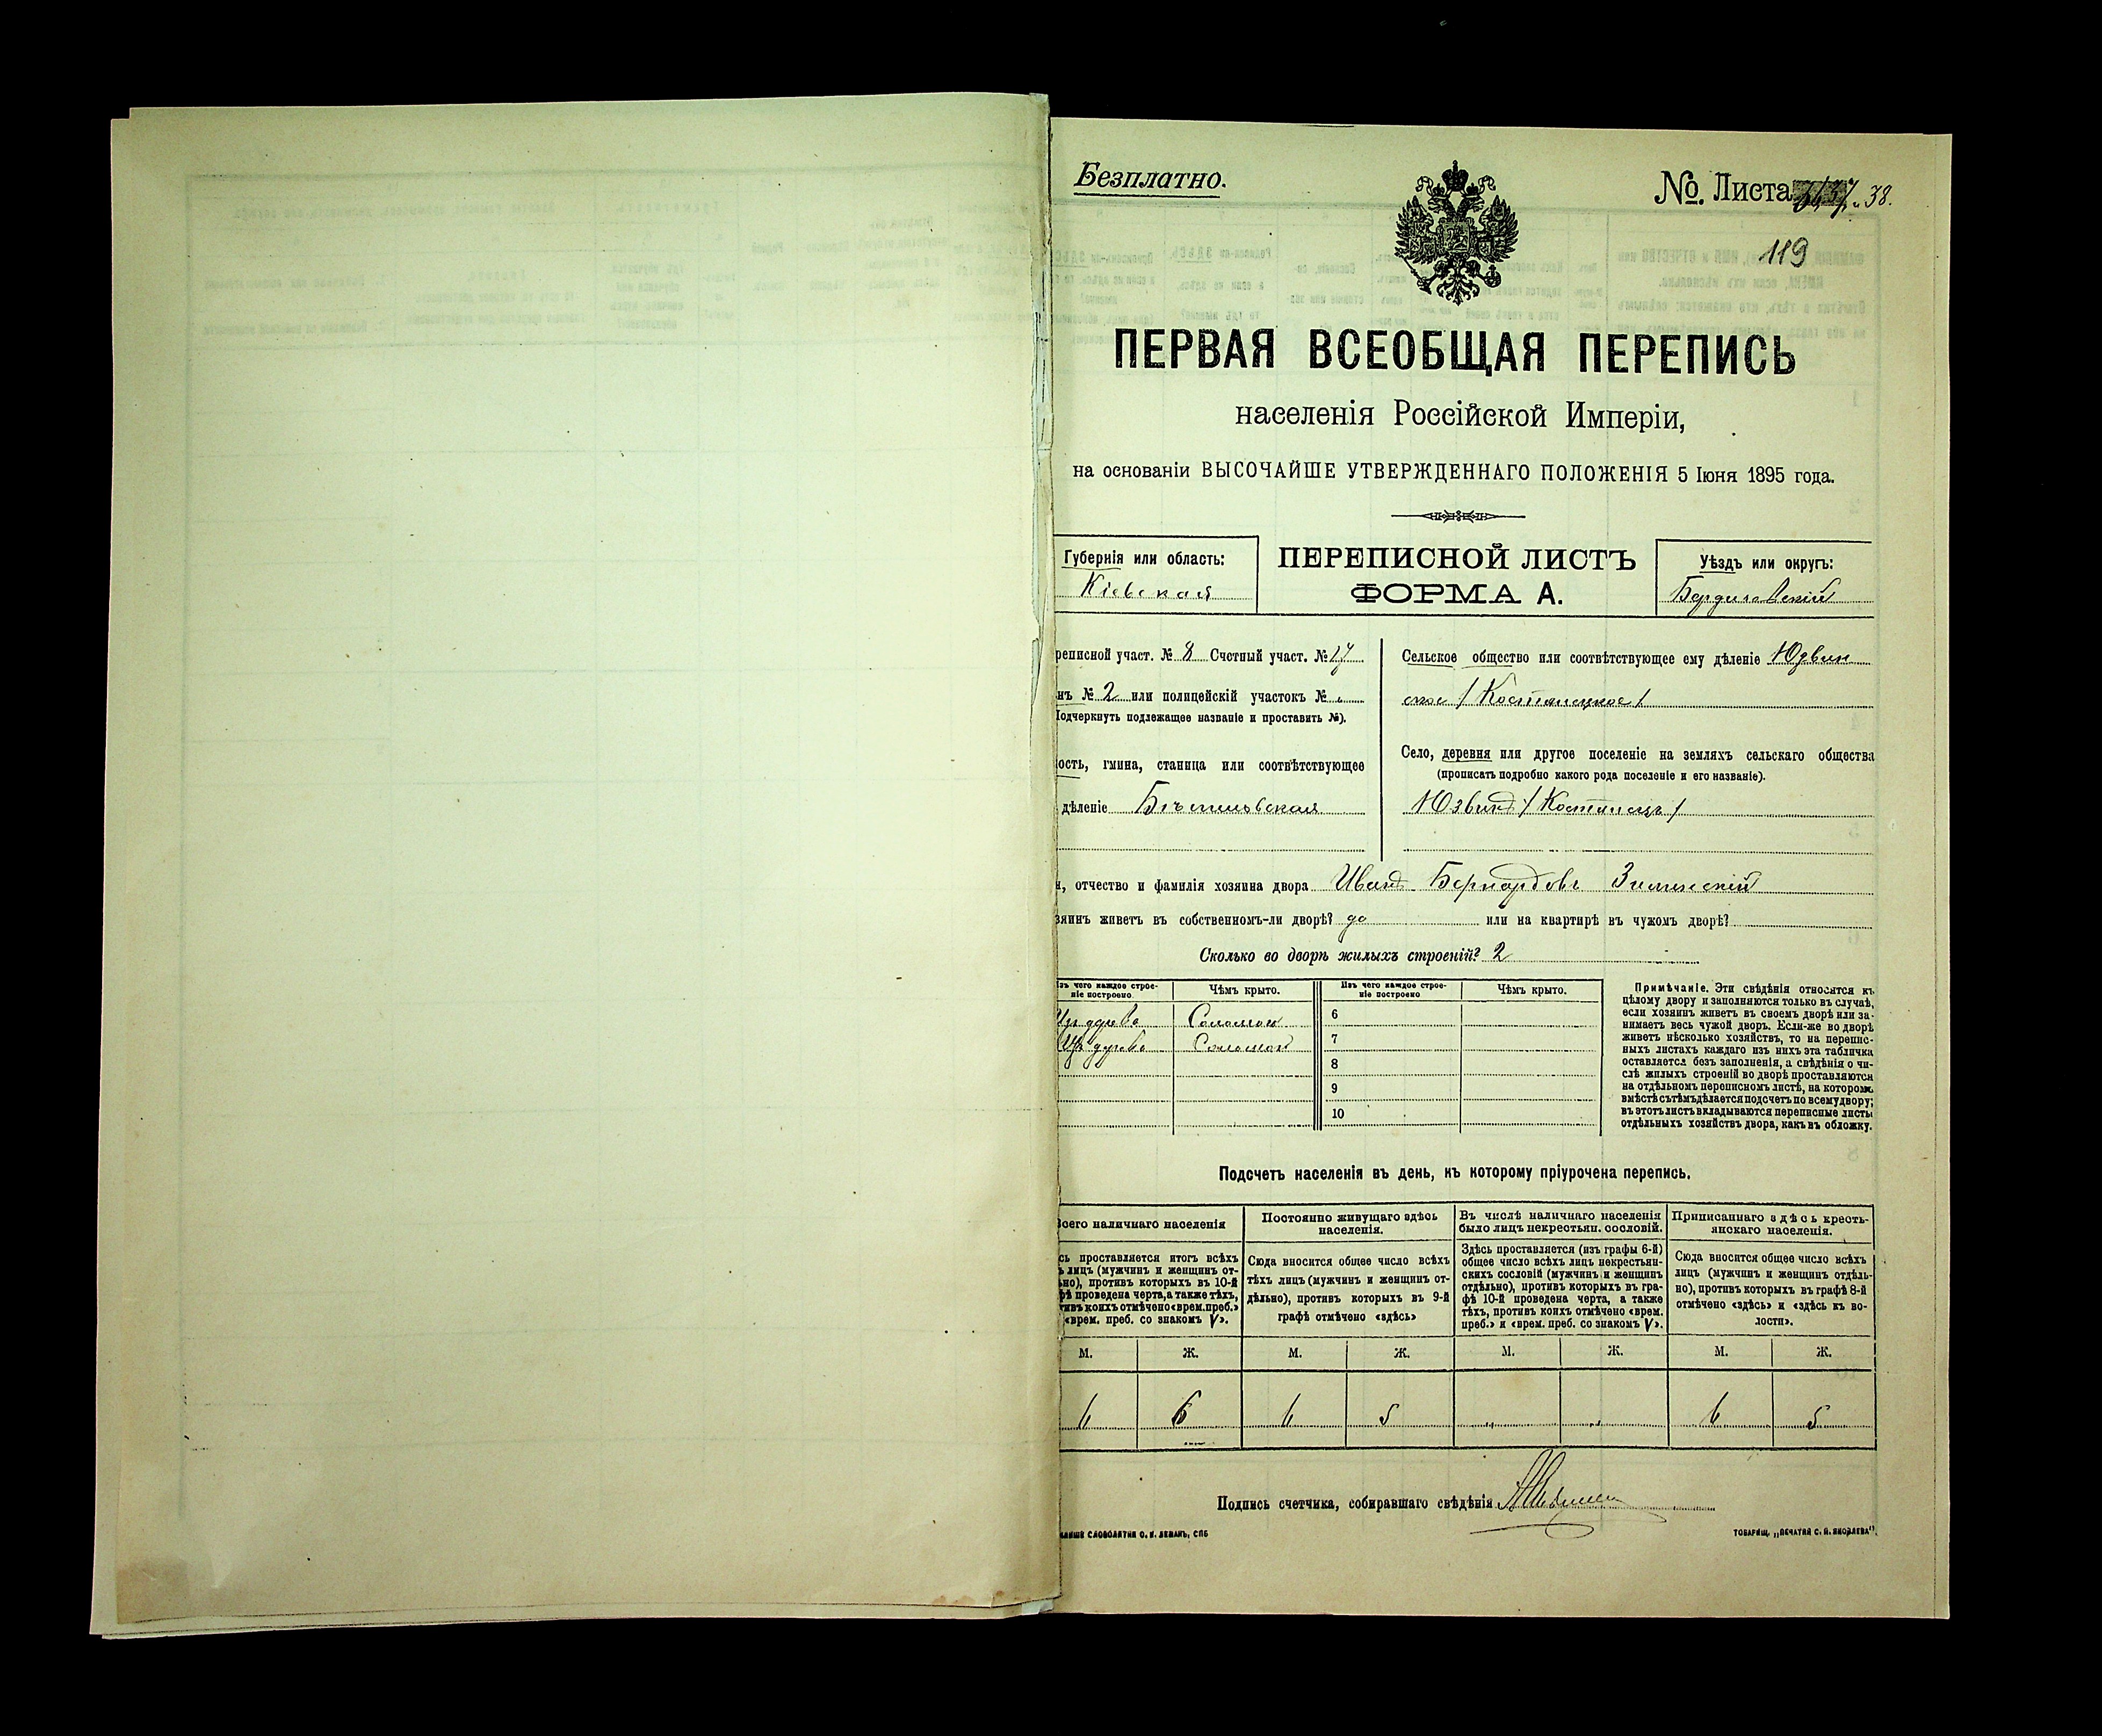 Безплатно.
№. Листа 37 и 38.
119
ПЕРВАЯ ВСЕОБЩАЯ ПЕРЕПИСЬ
населенія Россійской Имперіи,
на основаніи ВЫСОЧАЙШЕ УТВЕРЖДЕННАГО ПОЛОЖЕНІЯ 5 Іюня 1895 года.
Губернія или область:
Кіевская
ПЕРЕПИСНОЙ ЛИСТЪ
ФОРМА А.
Уѣздъ или округъ:
Бердичевскій
реписной участ. № 8 Счетный участ. № 17
нъ № 2 или полицейскій участокъ №
Подчеркнуть подлежащее названіе и проставить №).
ость, гмина, станица или соотвѣтствующее
дѣленіе Бѣлиловская
Сельское общество или соотвѣтствующее ему дѣленіе Юзвин
ское / Костянецкое /
Село, деревня или другое поселеніе на земляхъ сельскаго общества
(прописать подробно какого рода поселеніе и его названіе).
Юзвинъ / Костянецъ /
я, отчество и фамилія хозяина двора Иванъ Бернардовъ Зиминскій
зяинъ живетъ въ собственномъ-ли дворѣ? да или на квартирѣ въ чужомъ дворѣ?
Сколько во дворѣ жилыхъ строеній? 2
Изъ чего каждое строе-
ніе построено
Чѣмъ крыто.
Изъ дерева Соломою
Изъ дерева Соломою
Изъ чего каждое строе-
ніе построено
Чѣмъ крыто.
6
7
8
9
10
Примѣчаніе. Эти свѣдѣнія относятся къ
цѣлому двору и заполняются только въ случаѣ,
если хозяинъ живетъ въ своемъ дворѣ или за-
нимаетъ весь чужой дворъ. Если-же во дворѣ
живетъ нѣсколько хозяйствъ, то на перепис-
ныхъ листахъ каждаго изъ нихъ эта табличка
оставляется безъ заполненія, а свѣдѣнія о чи-
слѣ жилыхъ строеній во дворѣ проставляются
на отдѣльномъ переписномъ листѣ, на которомъ
вмѣстѣ съ тѣмъ дѣлается подсчетъ по всему двору;
въ этотъ листъ вкладываются переписные листы
отдѣльныхъ хозяйствъ двора, какъ въ обложку.
Подсчетъ населенія въ день, къ которому пріурочена перепись.
Всего наличнаго населенія
сь проставляется итогъ всѣхъ
ъ лицъ (мужчинъ и женщинъ от-
ьно), противъ которыхъ въ 10-й
фѣ проведена черта, а также тѣхъ,
тивъ коихъ отмѣчено «врем. преб.»
«врем. преб. со знакомъ V».
Постоянно живущаго здѣсь
населенія.
Сюда вносится общее число всѣхъ
тѣхъ лицъ (мужчинъ и женщинъ от-
дѣльно), противъ которыхъ въ 9-й
графѣ отмѣчено «здѣсь»
Въ числѣ наличнаго населенія
было лицъ некрестьян. сословій.
Здѣсь проставляется (изъ графы 6-й)
общее число всѣхъ лицъ некрестьян-
скихъ сословій (мужчинъ и женщинъ
отдѣльно), противъ которыхъ въ гра-
фѣ 10-й проведена черта, а также
тѣхъ, противъ коихъ отмѣчено «врем.
преб.» и «врем. преб. со знакомъ V».
Приписаннаго здѣсь кресть-
янскаго населенія.
Сюда вносится общее число всѣхъ
лицъ (мужчинъ и женщинъ отдѣль-
но), противъ которыхъ въ графѣ 8-й
отмѣчено «здѣсь» и «здѣсь къ во-
лости».
М. Ж. М. Ж. М. Ж. М. Ж.
6 6 6 5 „ „ 6 5
Подпись счетчика, собиравшаго свѣдѣнія
СЛОВОЛИТНЯ О. И. ЛЕМАНЪ, СПБ
ТОВАРИЩ. „ПЕЧАТНЯ С. П. ЯКОВЛЕВА".